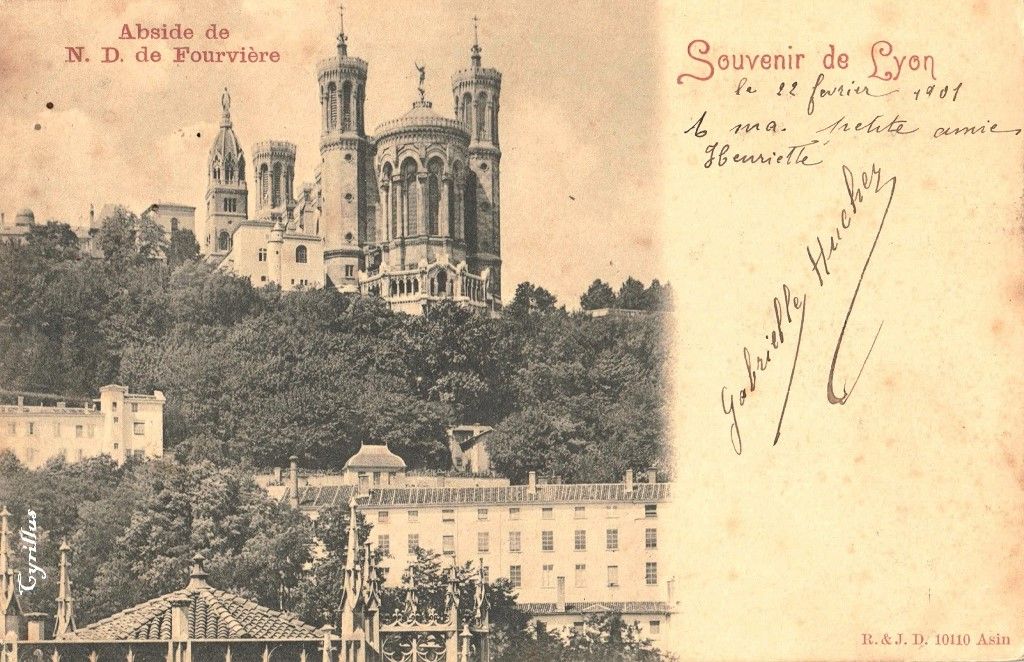 Abside de
N. D. de Fourvière
Souvenir de Lyon
le 22 fevrier 1901
A ma petite amie
Henriette
Gabrielle Hucher
Cyrillus
R. & J. D. 10110 Asin